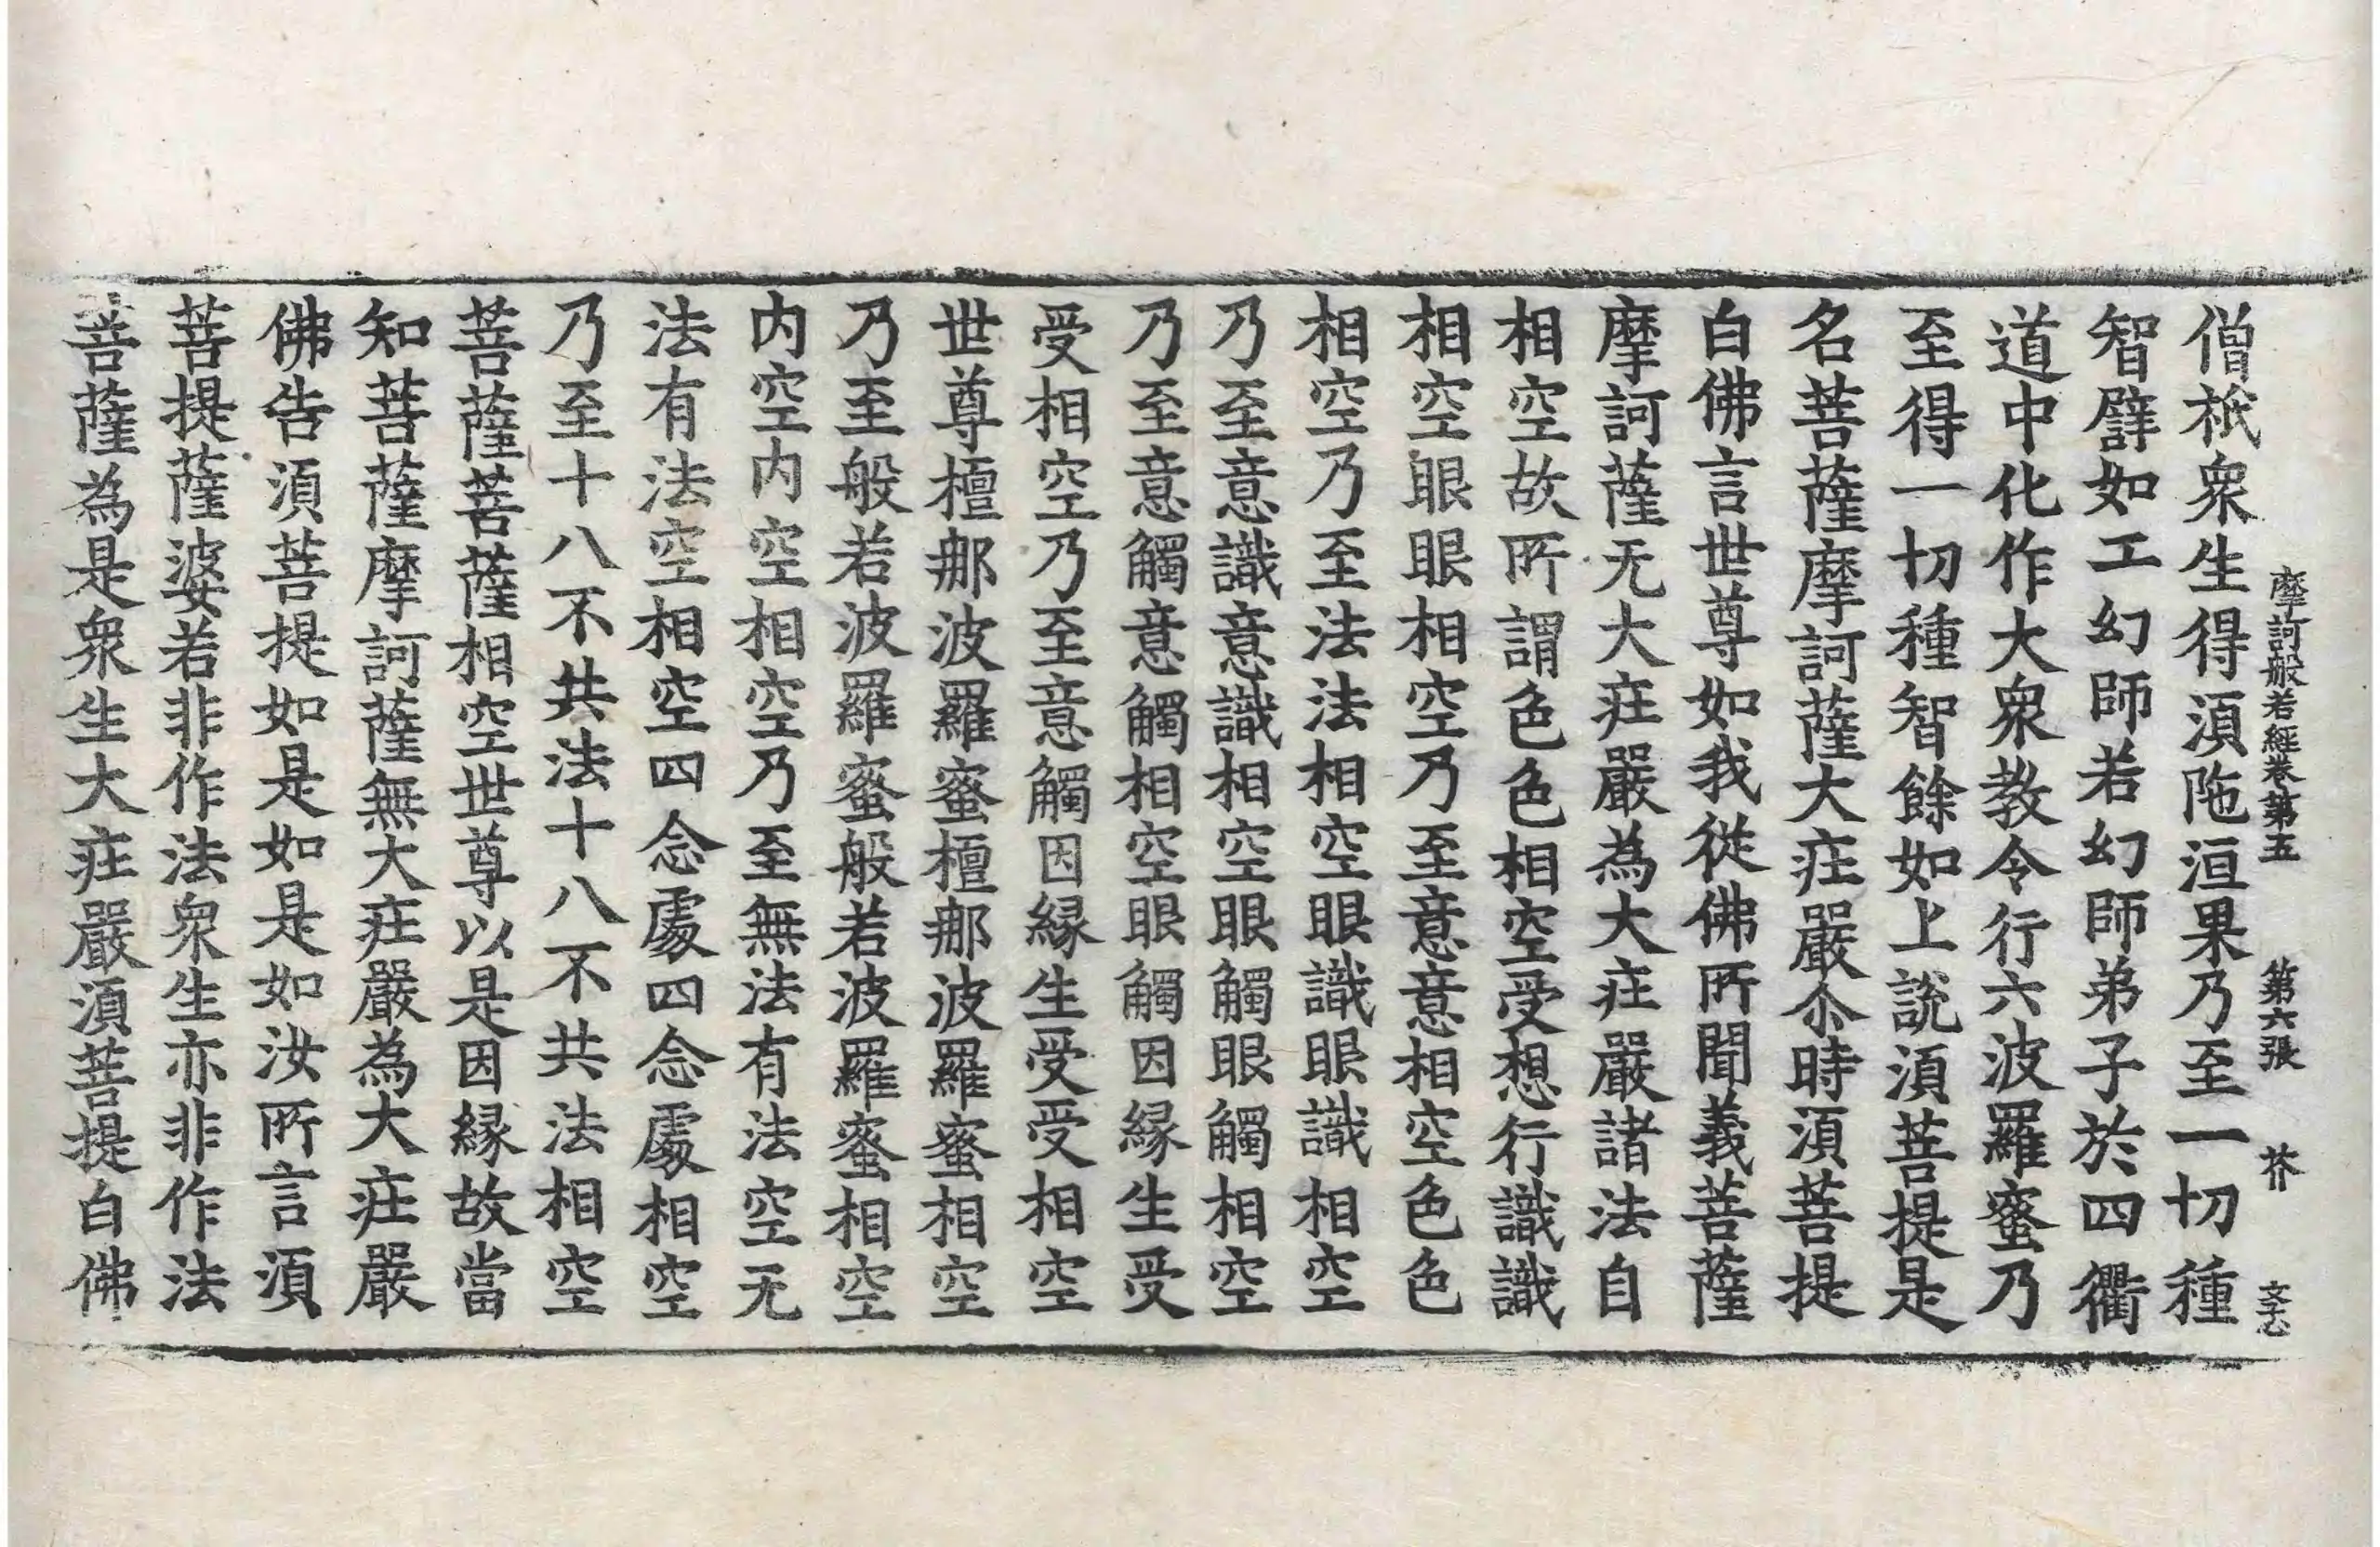 摩訶般若經卷第五　第六張　芥　文志
僧祇衆生得湏陁洹果乃至一切種
智譬如工幻師若幻師弟子於四衢
道中化作大衆教令行六波羅蜜乃
至得一切種智餘如上說湏菩提是
名菩薩摩訶薩大庄嚴尒時湏菩提
白佛言世尊如我從佛所聞義菩薩
摩訶薩无大庄嚴為大庄嚴諸法自
相空故所謂色色相空受想行識識
相空眼眼相空乃至意意相空色色
相空乃至法法相空眼識眼識相空
乃至意識意識相空眼觸眼觸相空
乃至意觸意觸相空眼觸因緣生受
受相空乃至意觸因緣生受受相空
世尊檀那波羅蜜檀那波羅蜜相空
乃至般若波羅蜜般若波羅蜜相空
内空内空相空乃至無法有法空无
法有法空相空四念處四念處相空
乃至十八不共法十八不共法相空
菩薩菩薩相空世尊以是因緣故當
知菩薩摩訶薩無大庄嚴為大庄嚴
佛告湏菩提如是如是如汝所言湏
菩提薩婆若非作法衆生亦非作法
菩薩為是衆生大庄嚴湏菩提白佛